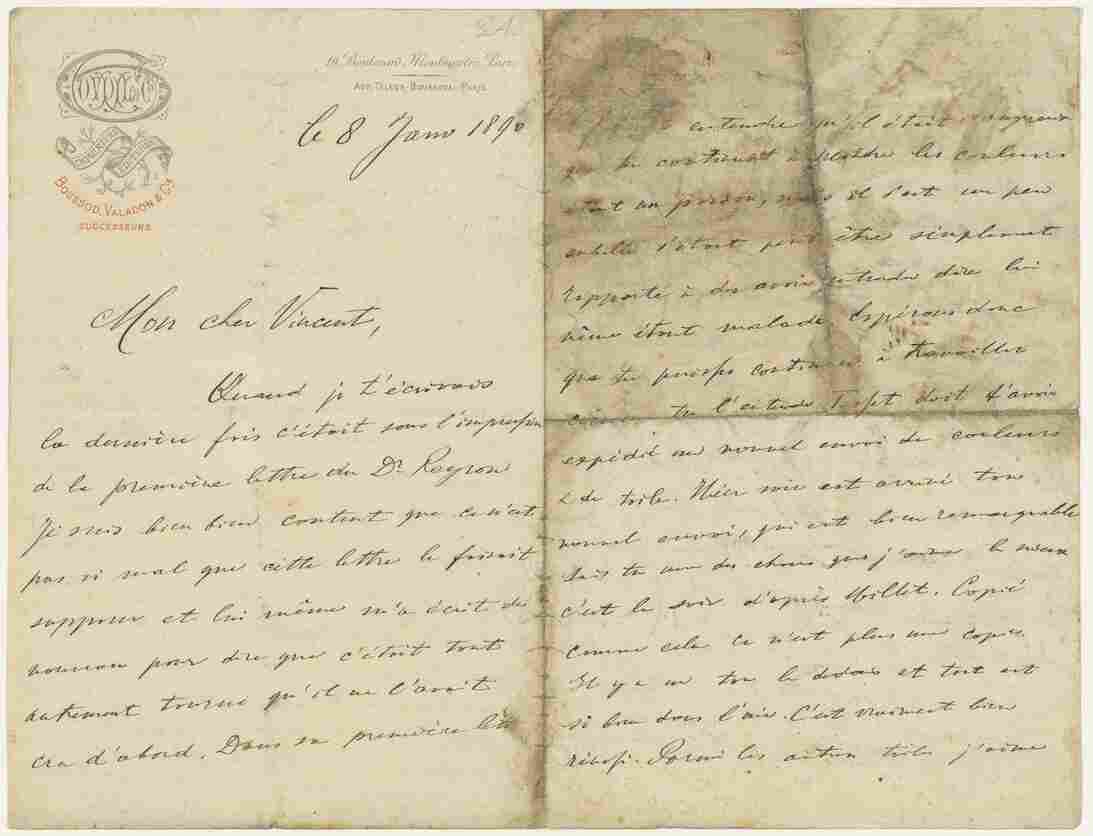 24.
GOUPIL & Cie
BOUSSOD, VALADON & Cie
SUCCESSEURS
19, Boulevard Montmartre, Paris
le 8 Janv 1890
Mon cher Vincent,
Quand je t'écrivais
la dernière fois c'était sous l'impression
de la première lettre du Dr. Peyron
Je suis bien bien content que ce n'est
pas si mal que cette lettre le faisait
supposer et lui même m'a écrit de
nouveau pour dire que c'était tout
autrement tourné qu'il ne l'avait
cru d'abord. Dans sa première
entendre qu'il était dangereux
que tu continuais à peindre les couleurs
étant un poison, mais il s'est un peu
c'était peut être simplement
même étant malade. Espérons donc
que tu puisses continuer à travailler
comme tu l'entends. doit t'avoir
expédié un nouvel envoi de couleurs
& de toile. Hier soir est arrivé ton
nouvel envoi, qui est bien remarquable
Sais tu une des choses que j'aime le mieux
c'est le soir d'après Millet. Copié
comme cela ce n'est plus une copie.
Il y a un ton là dedans et tout est
si bien dans l'air. C'est vraiment bien
réussi. Parmi les autres toiles j'aime